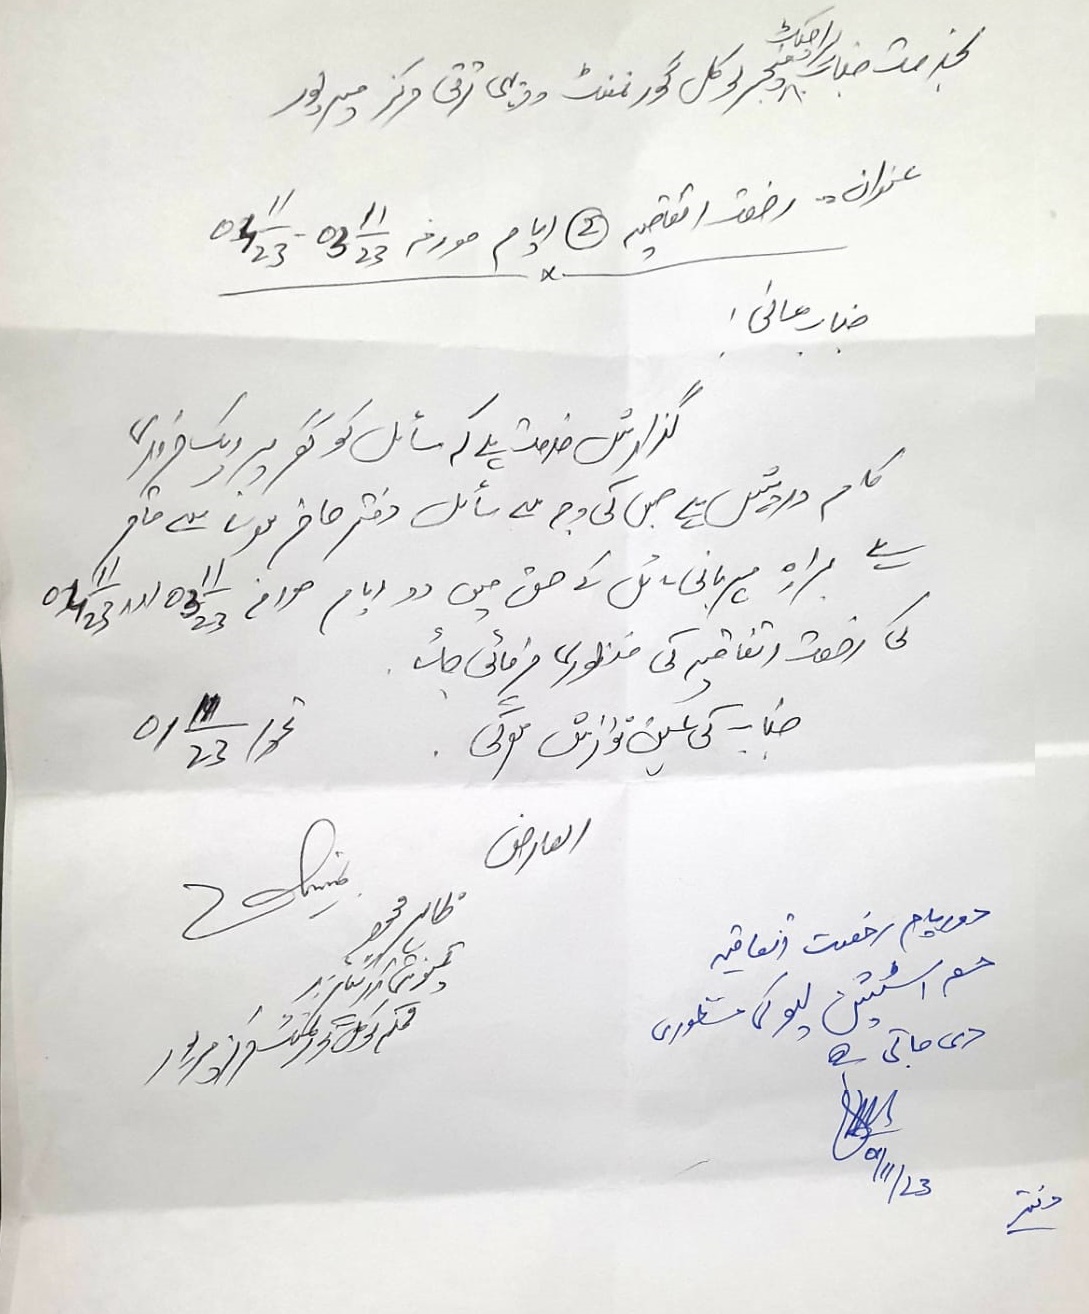 بخدمت جناب پراجیکٹ منیجر لوکل گورنمنٹ دیہی ترقی مرکز میرپور
عنوان:۔ رخصت اتفاقیہ 2 ایام مورخہ 03/11/23 - 04/11/23
جناب عالی!
گزارش خدمت ہے کہ سائل کو گھر پر ایک ضروری
کام درپیش ہے جس کی وجہ سے سائل دفتر حاضر ہونے سے قاصر
ہے براہ مہربانی سائل کے حق میں دو ایام مورخہ 03/11/23 اور 04/11/23
کی رخصت اتفاقیہ کی منظوری فرمائی جائے۔
جناب کی عین نوازش ہوگی۔
تحریر 01/11/23
العارض
طاہر محمود
محکمہ لوکل گورنمنٹ مرکز میرپور
دو ایام رخصت اتفاقیہ
معہ اسٹیشن لیو کی منظوری
دی جاتی ہے
01/11/23
دفتر